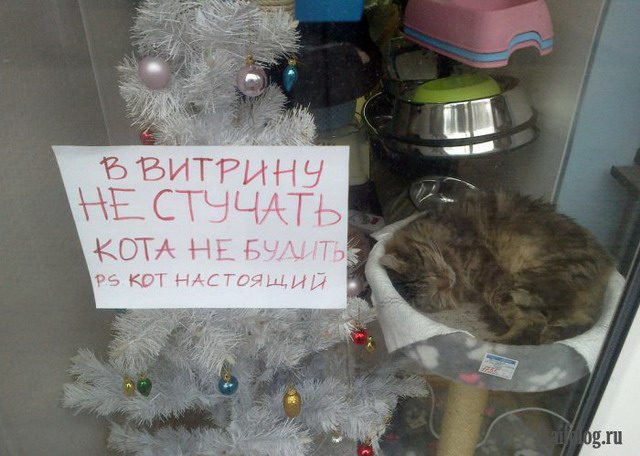 В ВИТРИНУ
НЕ СТУЧАТЬ
КОТА НЕ БУДИТЬ
P.S. КОТ НАСТОЯЩИЙ